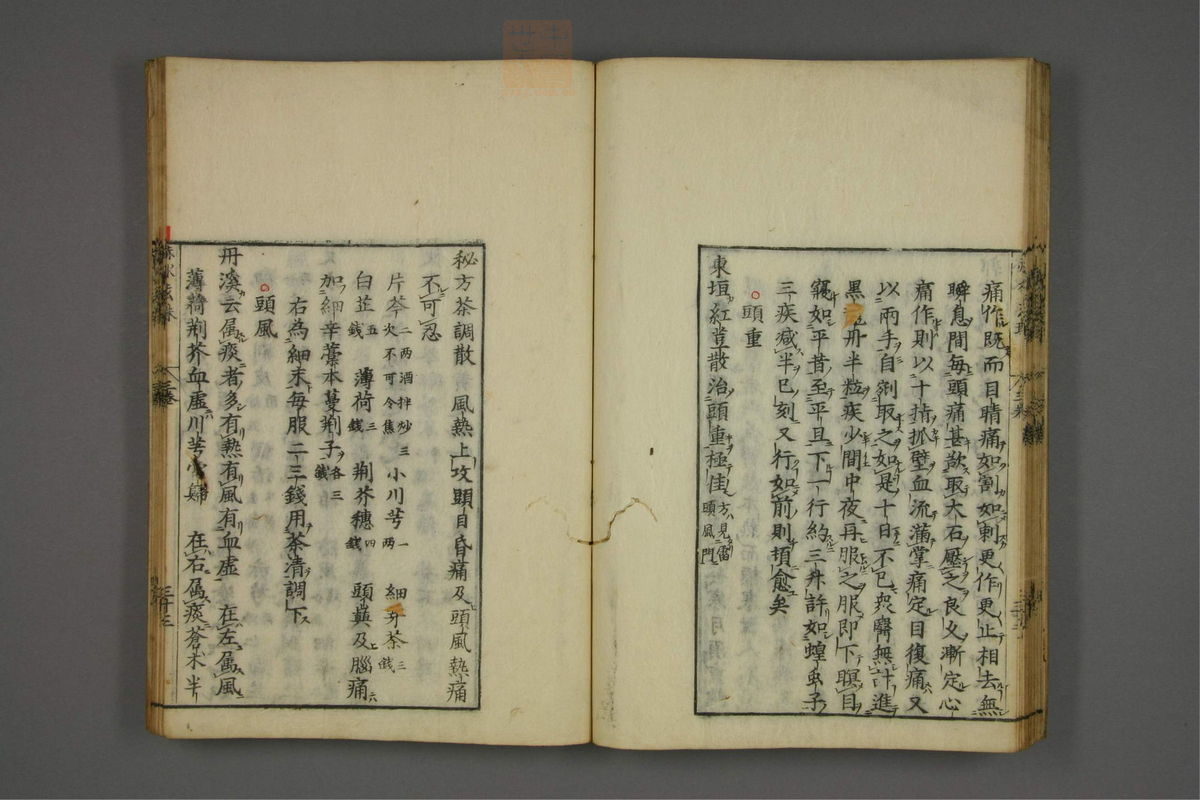 痛作既而目睛痛如割如刺更作更止相去無
瞬息間每頭痛甚欲取大石壓之良久漸定心
痛作則以十指抓壁血流滿掌痛定目復痛又
以兩手自剜取之如是十日不已衆醫無計進
黑丹半粒疾少間中夜再服之服即下瞑目
寢如平昔至平旦下一行約三升許如蝗虫子
三疾減半巳刻又行如前則頓愈矣
頭重
東垣紅豆散治頭重極佳
方見雷
頭風門
秘方茶調散
風熱上攻頭目昏痛及頭風熱痛
不可忍
片芩
二兩酒拌炒三
次不可令焦
小川芎
一兩
細芽茶
三錢
白芷
五錢
薄荷
三錢
荊芥穗
四錢
頭巔及腦痛
加細辛藁本蔓荊子
各三錢
右為細末每服二三錢用茶清調下
頭風
丹溪云属痰者多有熱有風有血虛在左属風
薄荷荊芥血虛川芎當歸在右属痰蒼朮半
三十三